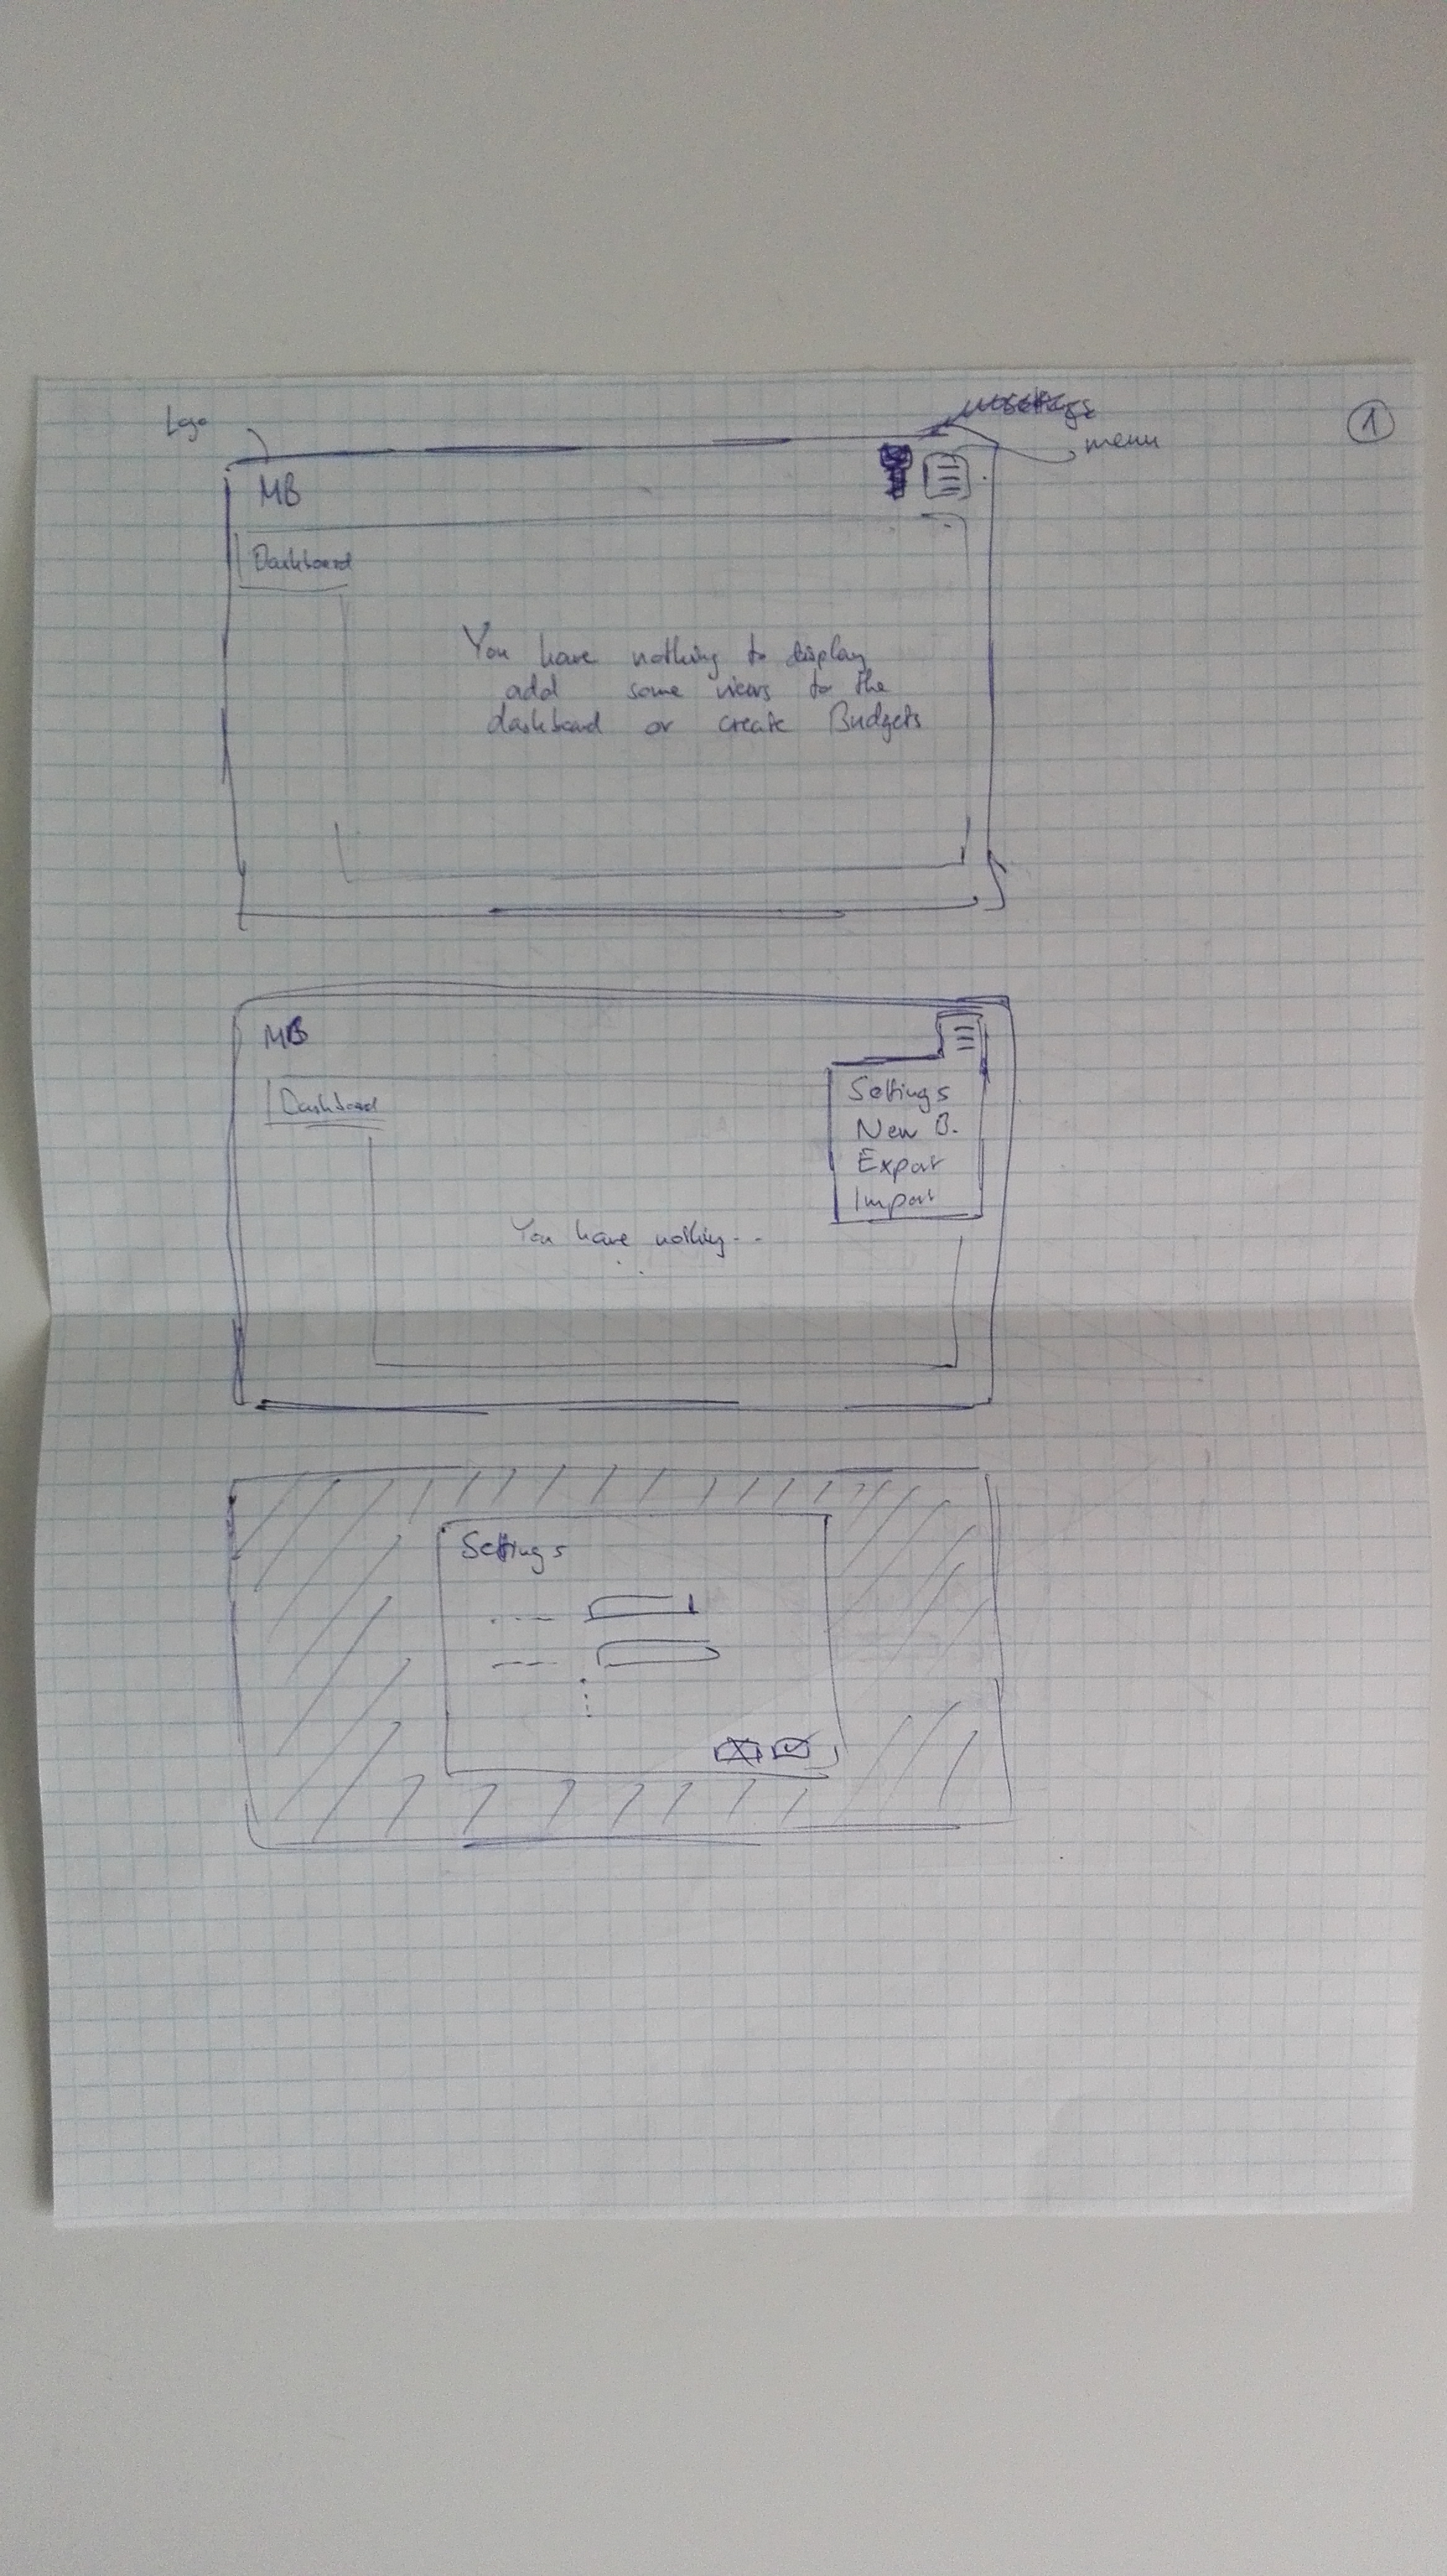 Logo
menu
1
MB
Dashboard
You have nothing to display
add some views to the
dashboard or create Budgets
MB
Dashboard
Settings
New B.
Export
Import
You have nothing...
Settings